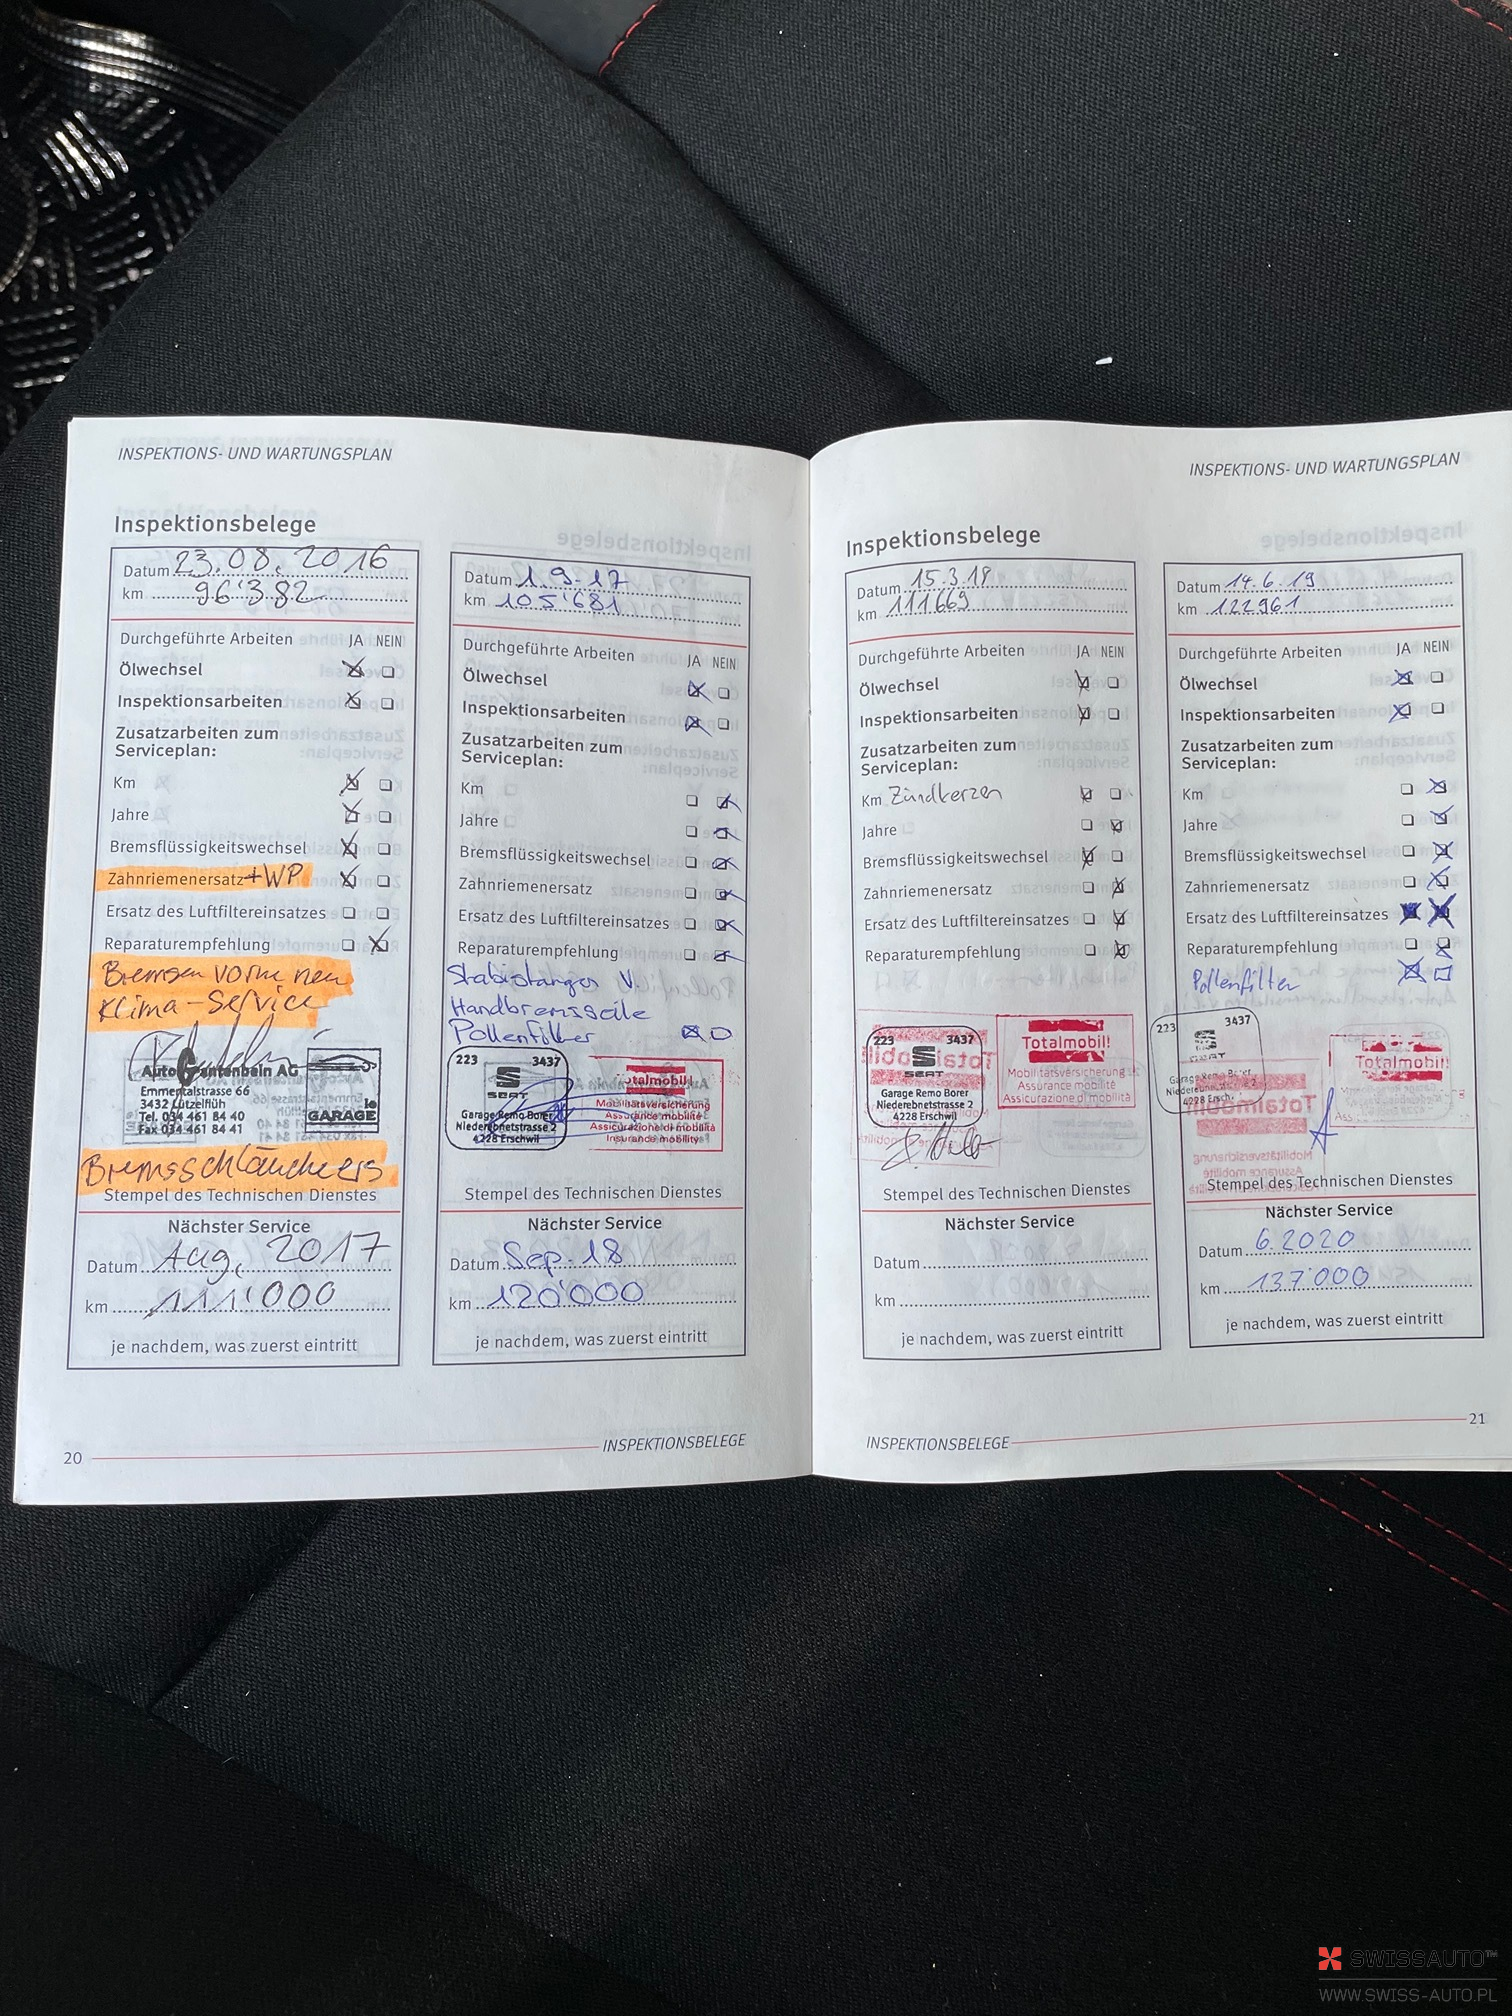 INSPEKTIONS- UND WARTUNGSPLAN
Inspektionsbelege
Datum 23.08.2016
km 96'382
Durchgeführte Arbeiten JA NEIN
Ölwechsel
Inspektionsarbeiten
Zusatzarbeiten zum
Serviceplan:
Km
Jahre
Bremsflüssigkeitswechsel
Zahnriemenersatz +WP
Ersatz des Luftfiltereinsatzes
Reparaturempfehlung
Bremsen vorne neu
Klima-Service
Auto Gantenbein AG
Emmentalstrasse 66
3432 Lützelflüh
Tel. 034 461 84 40
Fax 034 461 84 41
le
GARAGE
Stempel des Technischen Dienstes
Nächster Service
Datum Aug. 2017
km 111'000
je nachdem, was zuerst eintritt
Datum 1.9.17
km 105'681
Durchgeführte Arbeiten JA NEIN
Ölwechsel
Inspektionsarbeiten
Zusatzarbeiten zum
Serviceplan:
Km
Jahre
Bremsflüssigkeitswechsel
Zahnriemenersatz
Ersatz des Luftfiltereinsatzes
Reparaturempfehlung
Stabistangen V.
Handbremsseile
Pollenfilter
223 3437
SEAT
Garage Remo Borer
Niederebnetstrasse 2
4228 Erschwil
Totalmobil!
Mobilitätsversicherung
Assurance mobilité
Assicurazione di mobilità
Insurance mobility
Stempel des Technischen Dienstes
Nächster Service
Datum Sep. 18
km 120'000
je nachdem, was zuerst eintritt
20
INSPEKTIONSBELEGE
INSPEKTIONS- UND WARTUNGSPLAN
Inspektionsbelege
Datum 15.3.18
km 111669
Durchgeführte Arbeiten JA NEIN
Ölwechsel
Inspektionsarbeiten
Zusatzarbeiten zum
Serviceplan:
Km Zündkerzen
Jahre
Bremsflüssigkeitswechsel
Zahnriemenersatz
Ersatz des Luftfiltereinsatzes
Reparaturempfehlung
223 3437
SEAT
Garage Remo Borer
Niederebnetstrasse 2
4228 Erschwil
Totalmobil!
Mobilitätsversicherung
Assurance mobilité
Assicurazione di mobilità
Stempel des Technischen Dienstes
Nächster Service
Datum
km
je nachdem, was zuerst eintritt
Datum 14.6.19
km 122961
Durchgeführte Arbeiten JA NEIN
Ölwechsel
Inspektionsarbeiten
Zusatzarbeiten zum
Serviceplan:
Km
Jahre
Bremsflüssigkeitswechsel
Zahnriemenersatz
Ersatz des Luftfiltereinsatzes
Reparaturempfehlung
Pollenfilter
223 3437
SEAT
Garage Remo Borer
4228 Ersch
Totalmobil!
Stempel des Technischen Dienstes
Nächster Service
Datum 6.2020
km 137'000
je nachdem, was zuerst eintritt
INSPEKTIONSBELEGE
21
SWISSAUTO™
WWW.SWISS-AUTO.PL